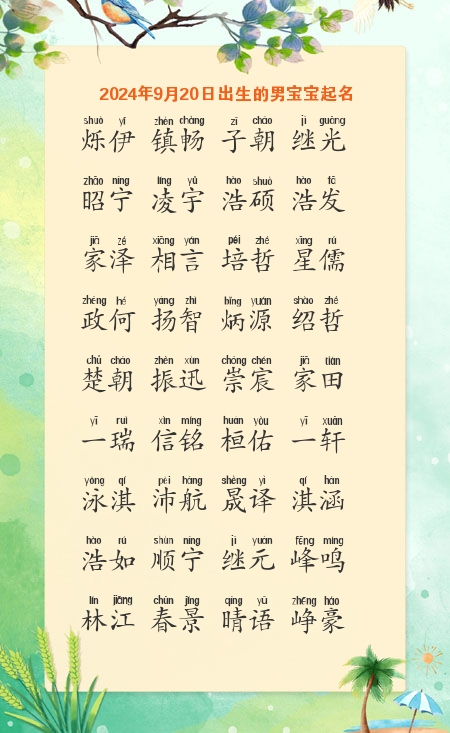 2024年9月20日出生的男宝宝起名
shuò yī zhèn chàng zǐ cháo jì guāng
烁伊 镇畅 子朝 继光
zhāo níng líng yǔ hào shuò hào fā
昭宁 凌宇 浩硕 浩发
jiā zé xiāng yán péi zhé xīng rú
家泽 相言 培哲 星儒
zhèng hé yáng zhì bǐng yuán shào zhé
政何 扬智 炳源 绍哲
chǔ cháo zhèn xùn chóng chén jiā tián
楚朝 振迅 崇宸 家田
yī ruì xìn míng huán yòu yī xuān
一瑞 信铭 桓佑 一轩
yǒng qí pèi háng shèng yì qí hán
泳淇 沛航 晟译 淇涵
hào rú shùn níng jì yuán fēng míng
浩如 顺宁 继元 峰鸣
lín jiāng chūn jǐng qíng yǔ zhēng háo
林江 春景 晴语 峥豪